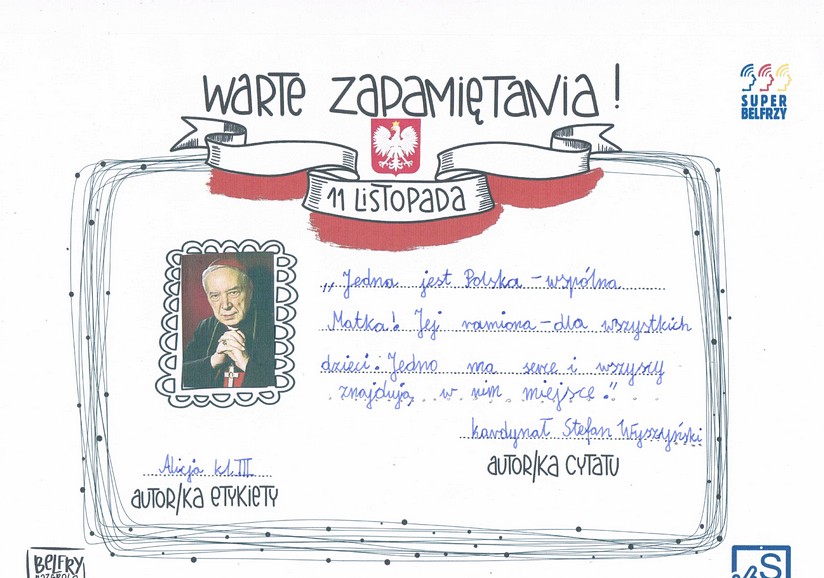 WARTE ZAPAMIĘTANIA!
SUPER
BELFRZY
11 LISTOPADA
„Jedna jest Polska – wspólna
Matka! Jej ramiona – dla wszystkich
dzieci. Jedno ma serce i wszyscy
znajdują w nim miejsce."
kardynał Stefan Wyszyński
AUTOR/KA CYTATU
Alicja kl. III
AUTOR/KA ETYKIETY
BELFRY